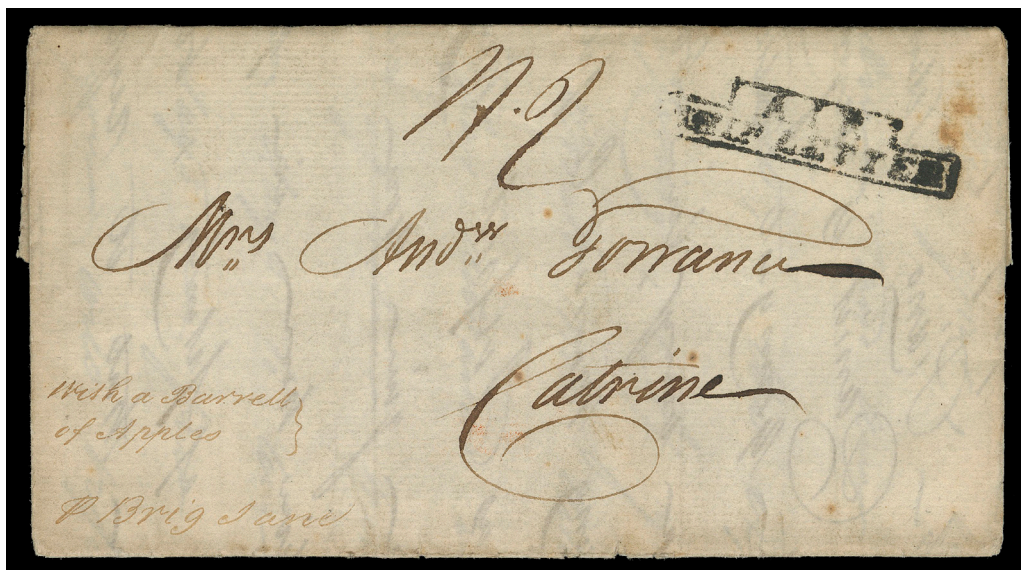 Mrs Andw Torrance
Catrine
With a Barrell
of Apples
P Brig Jane
SHIP LETTER